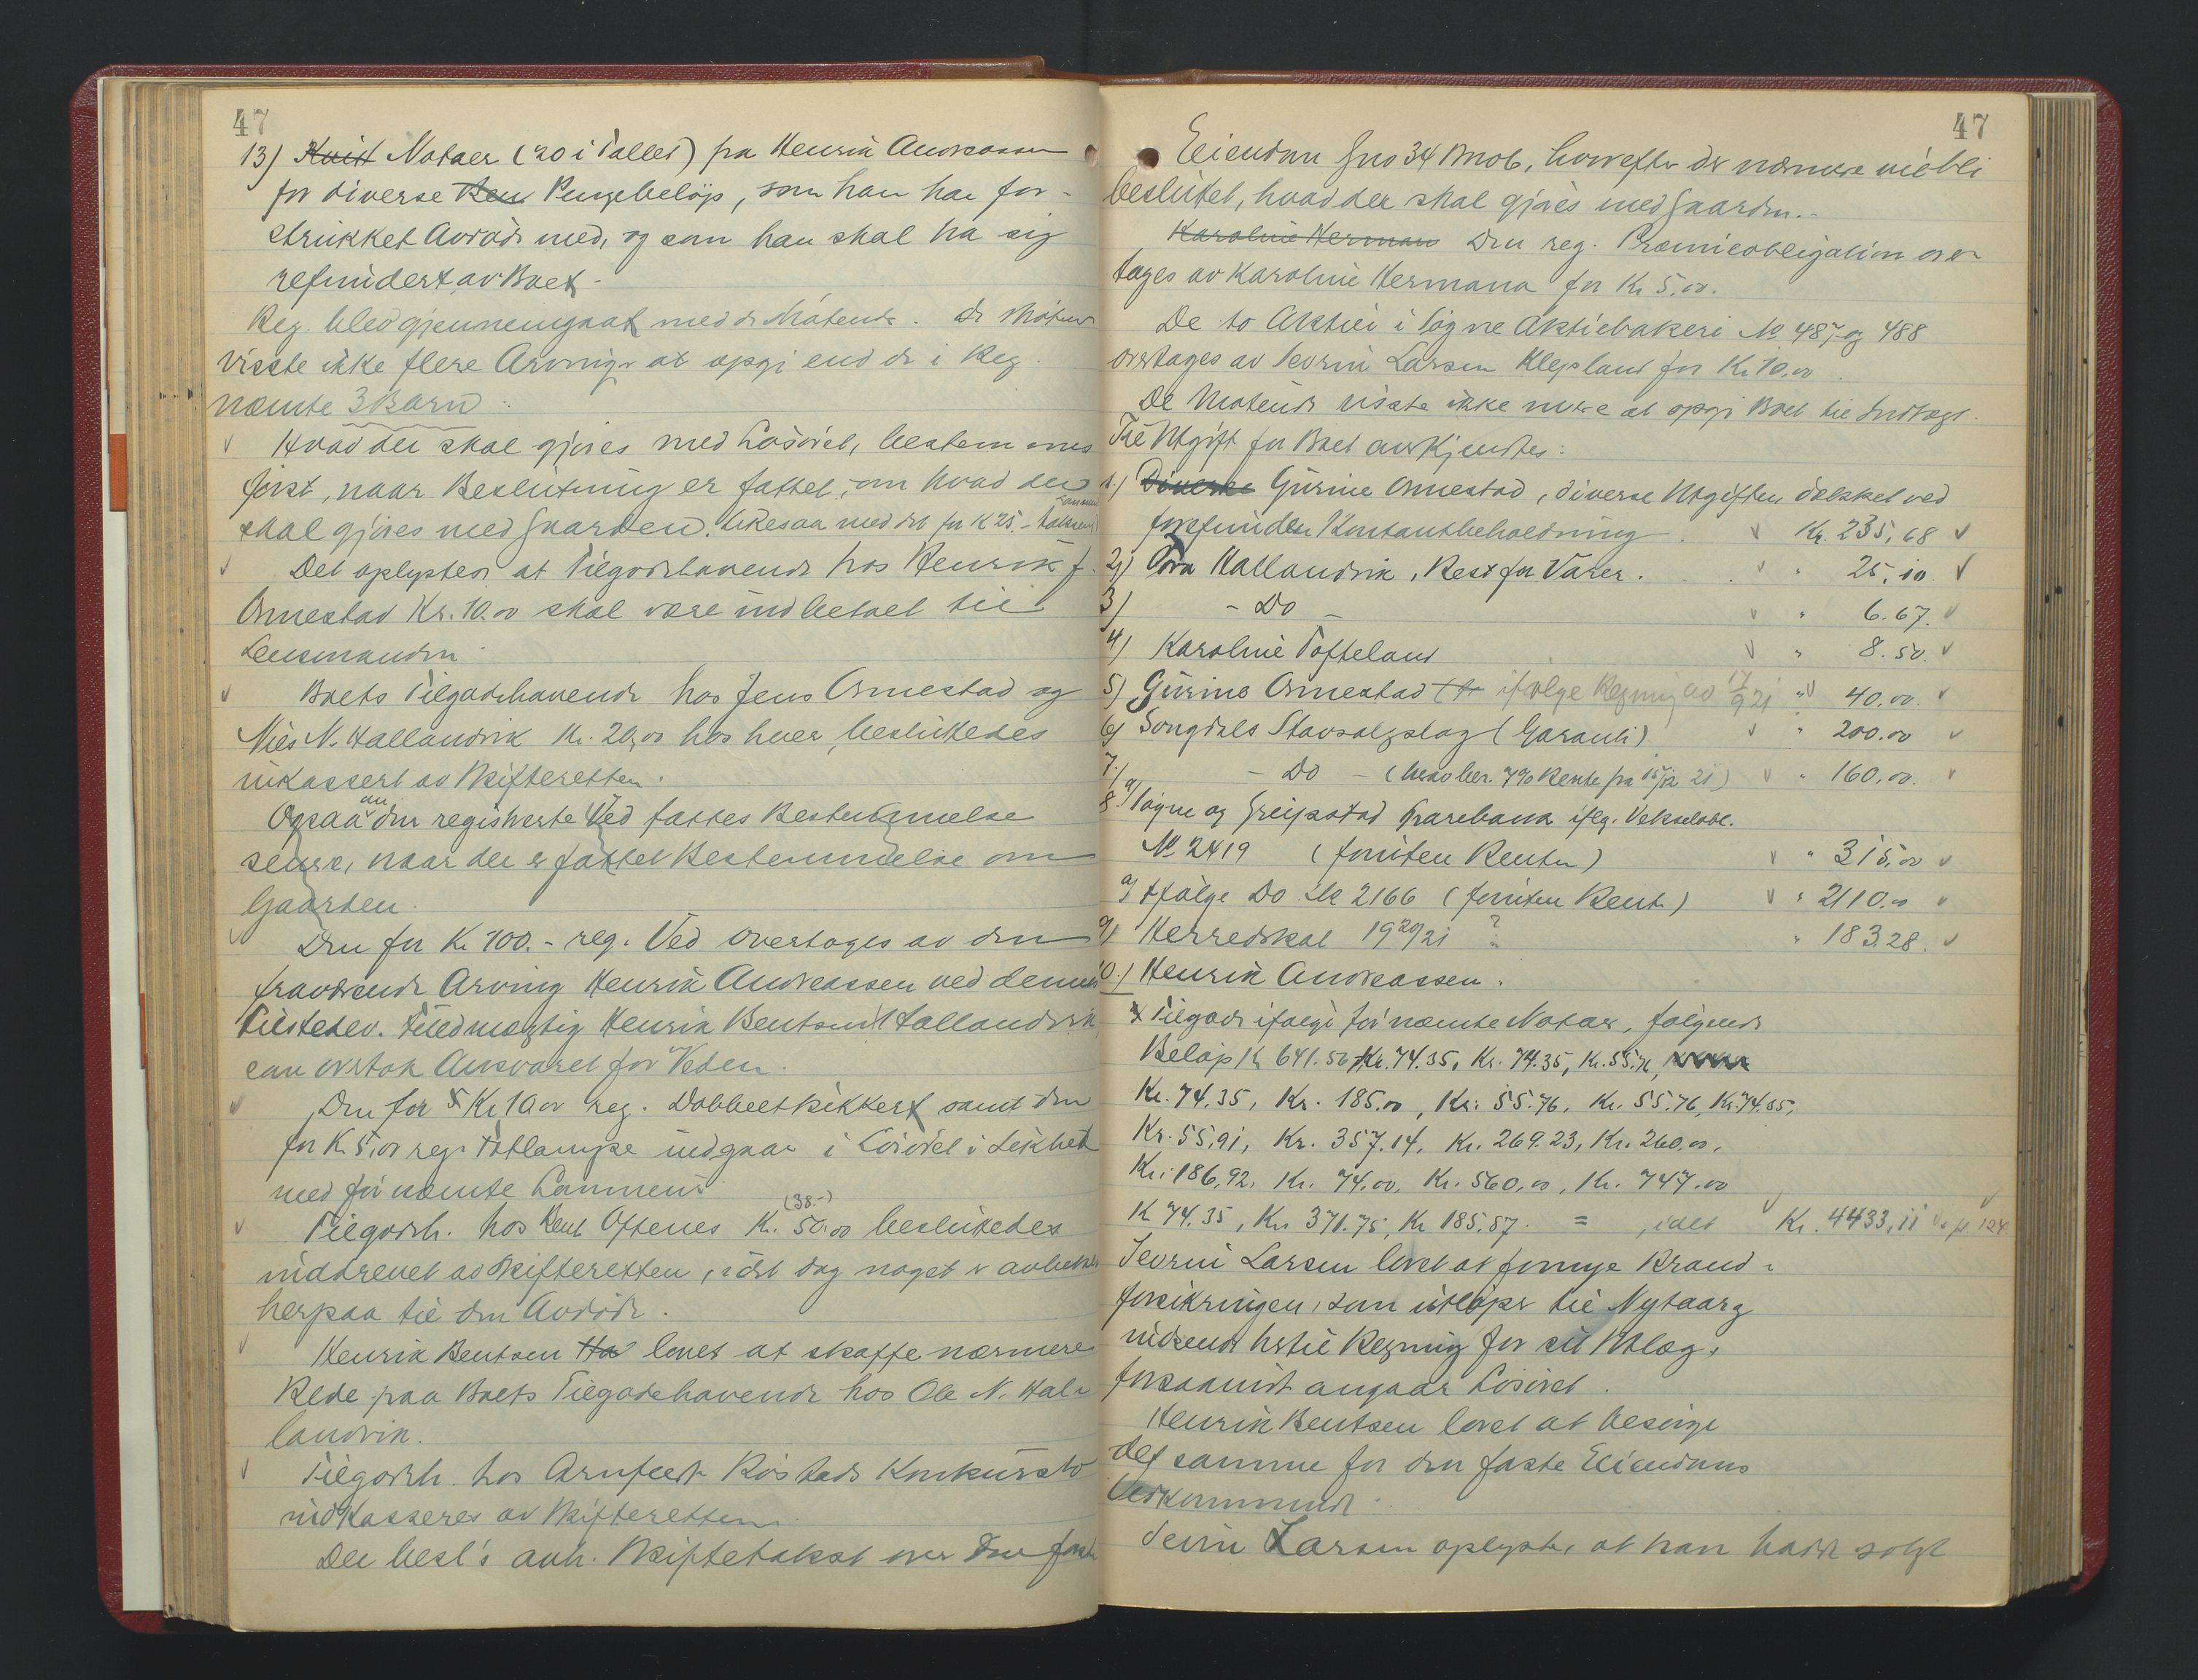 47
13) Kvist Notaer (20 i Tallet) fra Henrik Andreassen
for diverse Ren Pengebeløp, som han har for-
strukket Avdøde med, og som han skal ha sig
refundert av Boet.
Reg. blev gjennemgaat med de Møtende. De Møtende
visste ikke flere Arvinger at opgi end de i Reg.
nævnte 3 Barn.
Hvad der skal gjøres med Løsøret, bestemmes
først, naar Beslutning er fattet, om hvad der
skal gjøres med Gaarden. Likesaa med det for K 25.-
Det oplystes at Tilgodehavende hos Henrik J.
Ormestad Kr. 10.00 skal være indbetalt til
Lensmanden.
Boets Tilgodehavende hos Jens Ormestad og
Nils N. Hallandvik Kr. 20,00 hos hver, besluttedes
inkassert av Skifteretten.
Ogsaa an den registrerte Ved fattes Bestemmelse
senere, naar der er fattet Bestemmelse om
Gaarden.
Den for K. 100.- reg. Ved overtages av den
fraværende Arving Henrik Andreassen ved dennes
Tilstedev. Fuldmægtig Henrik Bentsen Hallandvik
som overtok Ansvaret for Veden.
Den for Kr 10.00 reg. Dobbeltkikkert samt den
for K. 5,00 reg. indgaar i Løsøret i Likhet
med før nævnte
Tilgodeh. hos Knut Oftenes K. 50.00 (38.-) besluttedes
inddrevet av Skifteretten, idet dog noget er avbetalt
herpaa til den Avdøde.
Henrik Bentsen Ha lovet at skaffe nærmere
Rede paa Boets Tilgodehavende hos Ole N. Hal-
landvik.
Tilgodeh. hos Arnfeldt Røstads Konkursbo
indkasseres av Skifteretten.
Der besl's avh. Skiftetakst over den faste
47
Eiendom Gno 34 Bno 6, hvorefter det nærmere vil bli
beslutet, hvad der skal gjøres med Gaarden.-
Karoline Herman Den reg. Præmieobligation over-
tages av Karoline Hermana for Kr 5.00.
De to Aktier i Søgne Aktiebakeri No 487 og 488
overtages av Severin Larsen Klepland for Kr. 10.00
De Møtende visste ikke mere at opgi Boet til Indtægt.
Til Utgift for Boet anerkjendtes:
1) Diverse Gurine Ormestad, diverse Utgifter dækket ved
forefunden Kontantbeholdning . Kr. 235,68
2) Tora Hallandvik, Rest for Varer. " 25.10
3) - Do - " 6.67.
4) Karoline Tofteland " 8.50.
5) Gurine Ormestad ifølge Regning av 17/9 21 " 40.00.
6) Songdals Stavsalgslag (Garanti) " 200.00
7) - Do - (herav ber. 7% Rente fra 15/12 21) " 160.00.
8 a) Søgne og Greipstad Sparebank iflg. Vekselobl.
No 2419 (foruten Renter) " 315,00
Ifølge Do 2166 (foruten Rente) " 2110.00
9) Herredskat 1920/21 ? " 183.28.
10.) Henrik Andreassen.
Tilgode ifølge før nævnte Notaer, følgende
Beløp K 641.50, Kr. 74.35, Kr. 74.35, K. 55.76,
Kr. 74.35, Kr. 185.00, Kr. 55.76, Kr. 55.76, Kr. 74.35,
Kr. 55.91, Kr. 357.14, Kr. 269.23, Kr. 260.00,
Kr. 186,92, Kr. 74.00, Kr. 560,00, Kr. 747.00
K 74.35, Kr. 371.75, Kr 185.87. = , ialt Kr. 4433,11
Severin Larsen lovet at fornye Brand-
forsikringen, som utløper til Nytaar og
indsende hertil Regning for sit Utlæg,
forsaavidt angaar Løsøret.
Henrik Bentsen lovet at besørge
det samme for den faste Eiendoms
Vedkommende.
Severin Larsen oplyste, at han hadde solgt